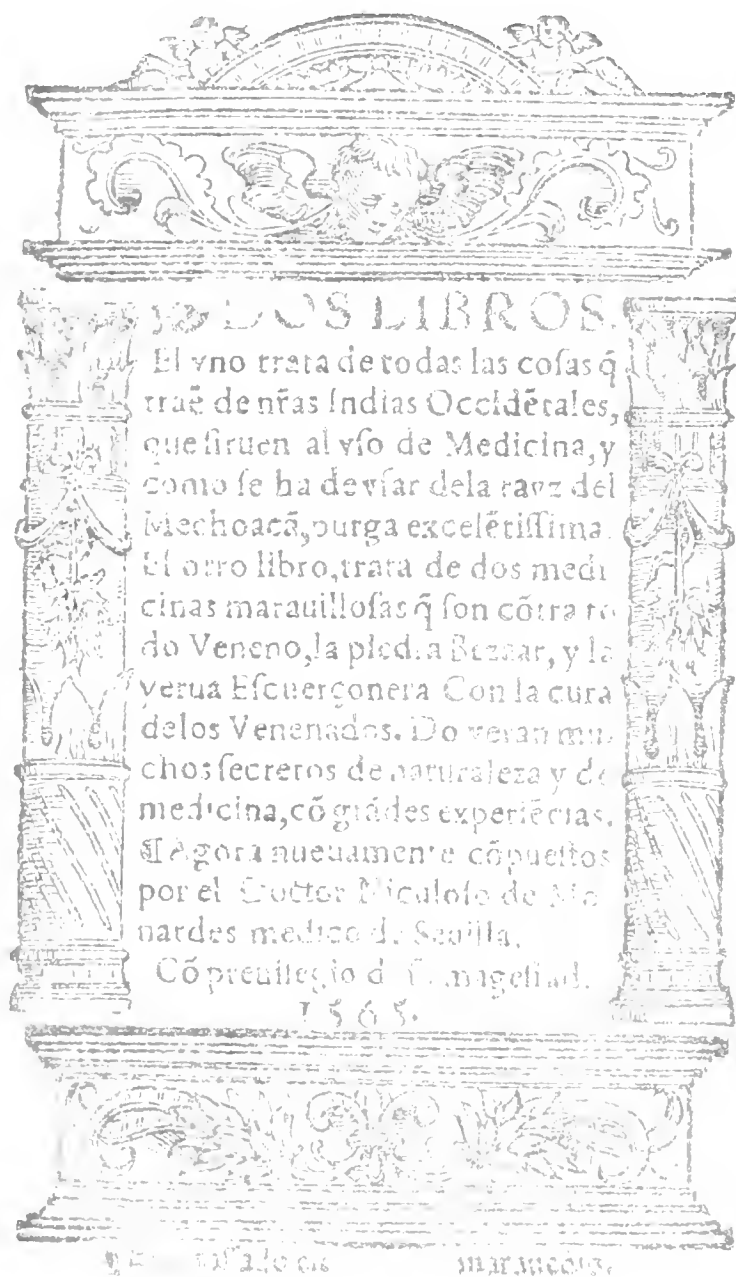 DOS LIBROS.
El vno trata de todas las coſas q̃
traẽ de nr̃as Indias Occidẽtales,
que ſiruen al vſo de Medicina, y
como ſe ha de vſar dela rayz del
Mechoacã, purga excelẽtiſſima.
El otro libro, trata de dos medi
cinas marauilloſas q̃ ſon cõtra to
do Veneno, la piedra Bezaar, y la
yerua Eſcuerçonera. Con la cura
delos Venenados. Do veran mu
chos ſecretos de naturaleza y de
medicina, cõ grãdes experiẽcias.
¶ Agora nueuamente cõpueſtos
por el Doctor Niculoſo de Mo
nardes medico de Seuilla.
Cõ preuilegio de ſu mageſtad.
1565.